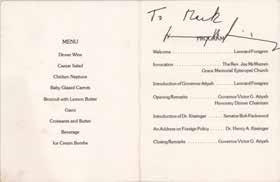 MENU
Dinner Wine
Caesar Salad
Chicken Neptune
Baby Glazed Carrots
Broccoli with Lemon Butter
Croissants and Butter
Beverage
Ice Cream Bombe
To Mark
Welcome Leonard Forsgren
Invocation The Rev. Joy McMaren
Grace Memorial Episcopal Church
Introduction of Governor Atiyeh Leonard Forsgren
Opening Remarks Governor Victor G. Atiyeh
Honorary Dinner Chairman
Introduction of Dr. Kissinger Senator Bob Packwood
An Address on Foreign Policy Dr. Henry A. Kissinger
Closing Remarks Governor Victor G. Atiyeh